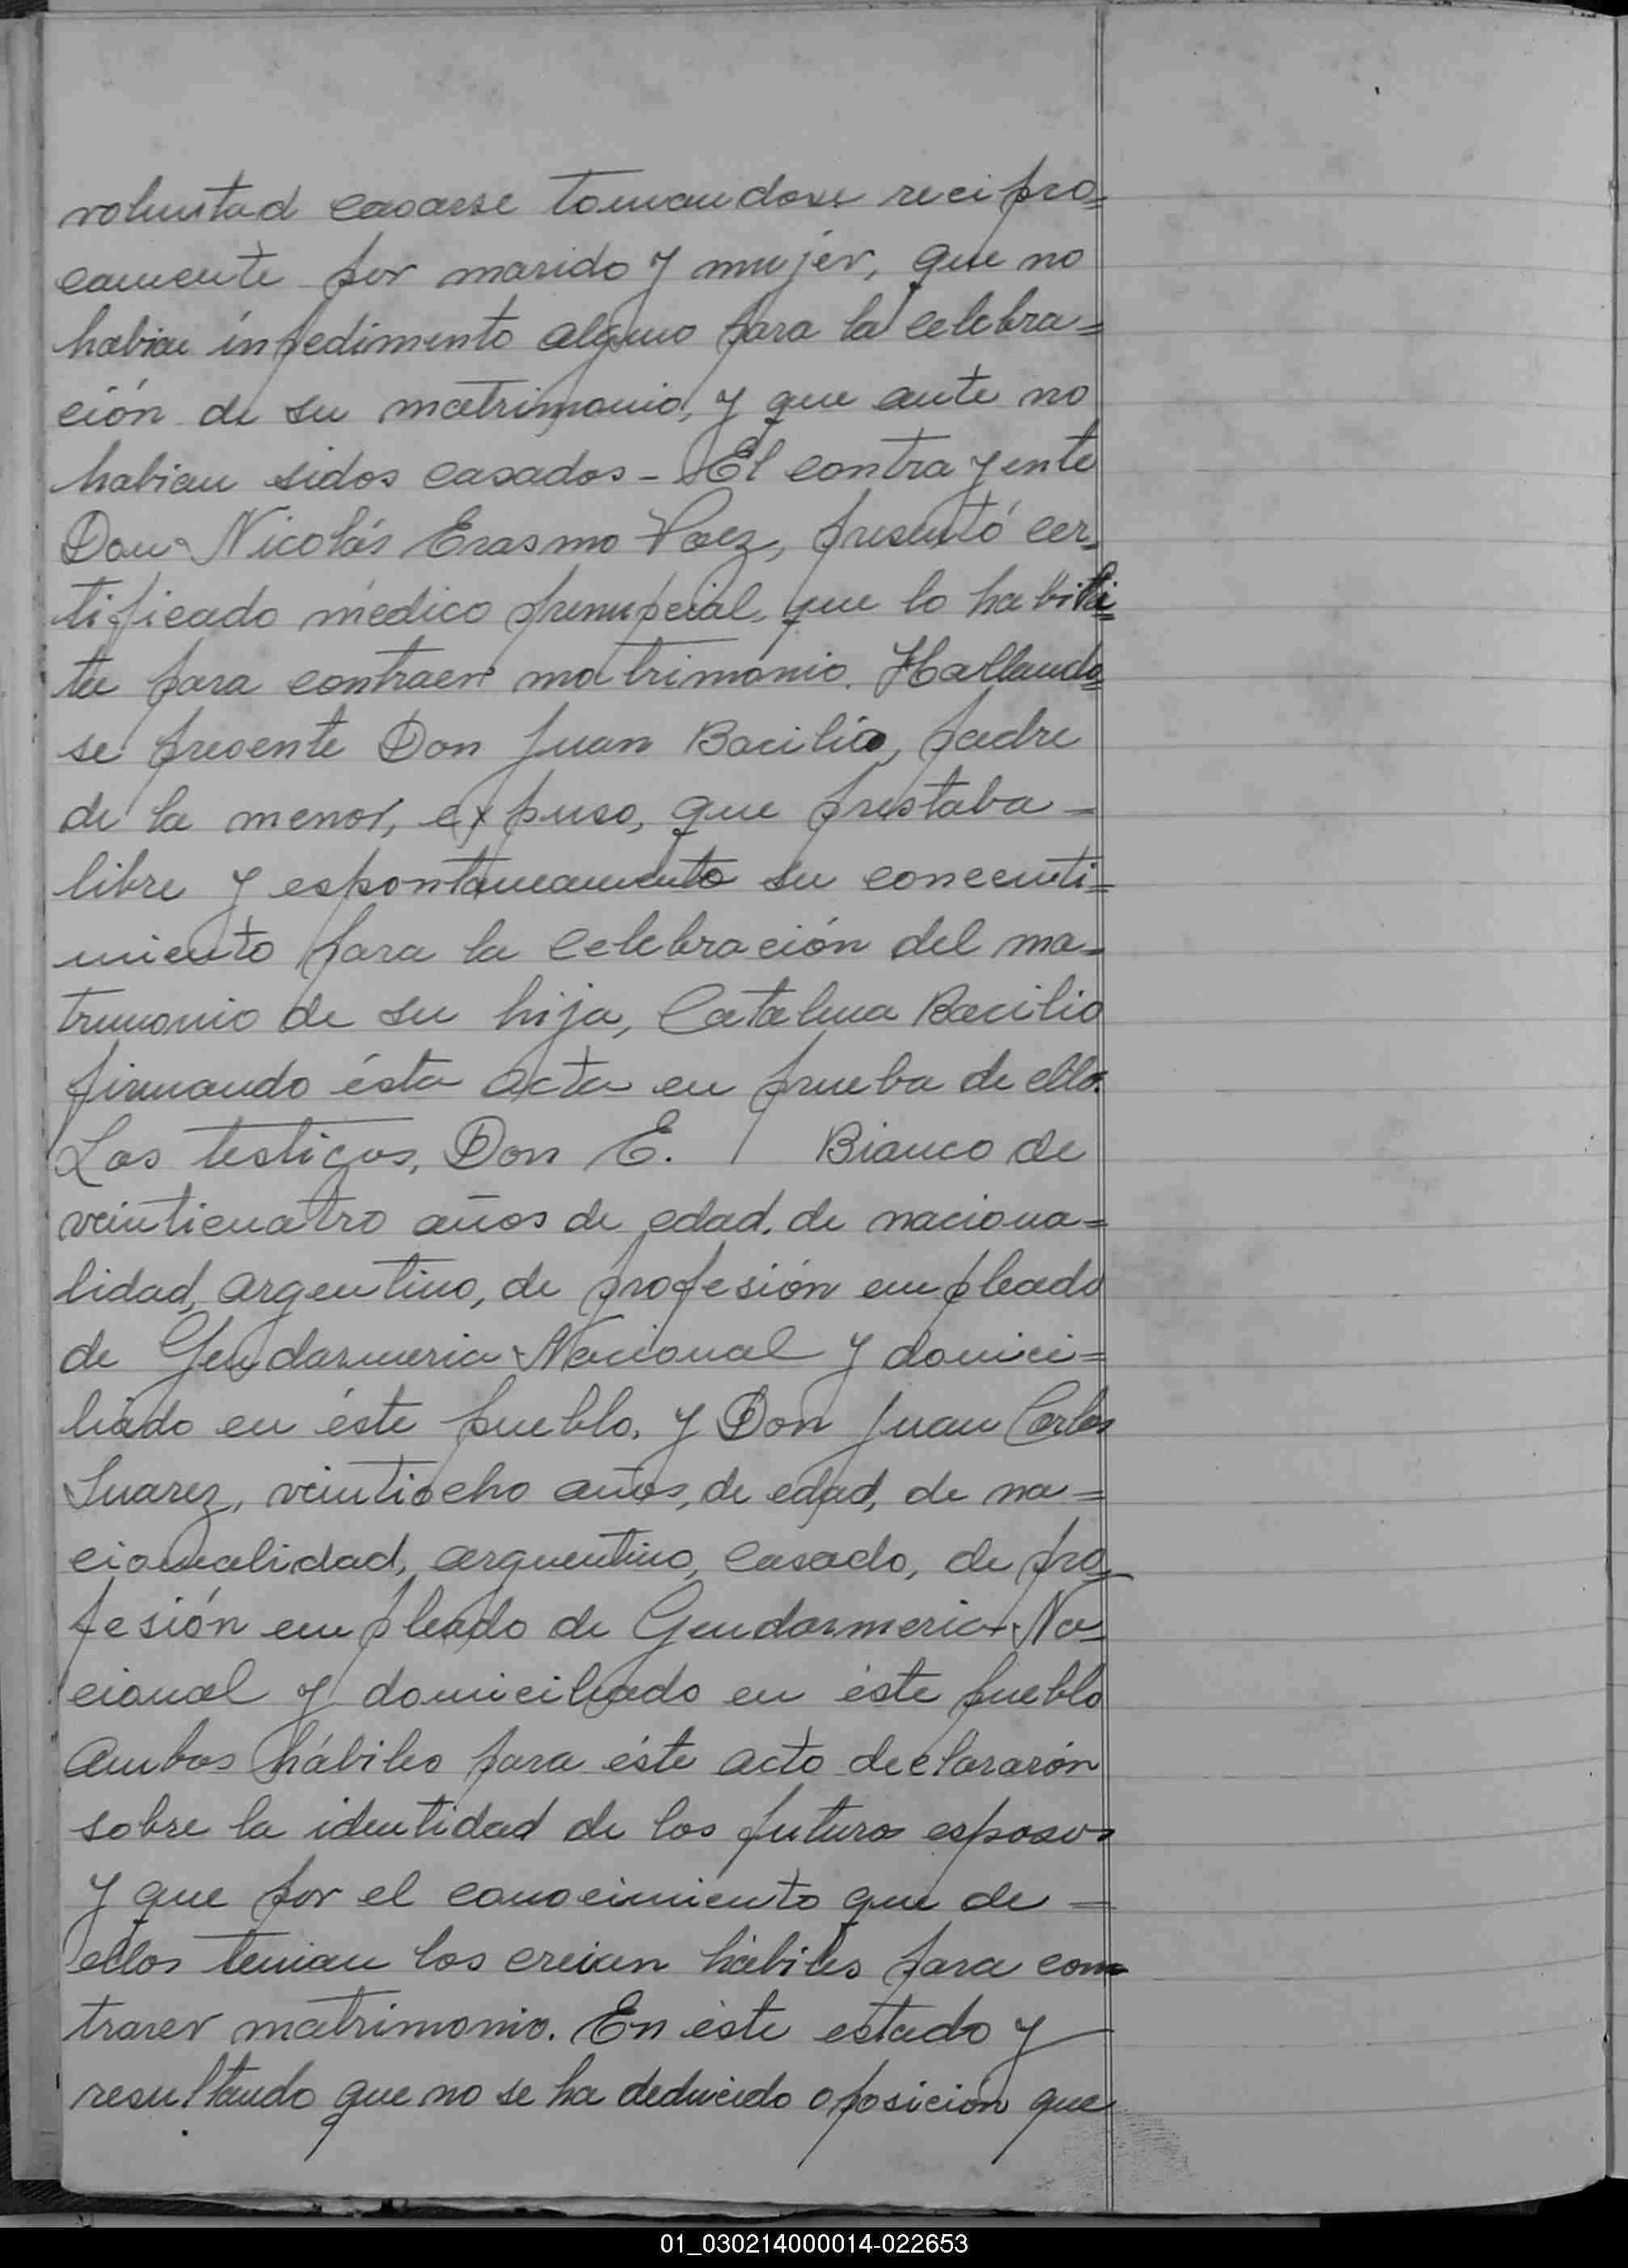 voluntad casarse tomandose recipro=
camente por marido y mujér, que no
habian inpedimento alguno para la celebra=
ción de su matrimonio, y que ante no
habian sidos casados - El contrayente
Don Nicolás Erasmo Paez, presentó cer=
tificado médico prenupcial, que lo habili=
ta para contraer matrimónio. Hallando=
se presente Don Juan Bacilio, padre
de la menor, expuso, que prestaba =
libre y espontaneamento su concenti=
miento para la celebración del ma=
trimonio de su hija, Catalina Bacilio
firmando ésta acta en prueba de ello.
Los testigos, Don E. Bianco de
veinticuatro años de edad, de naciona=
lidad, argentino, de profesión empleado
de Gendarmeria Nacional y domici=
liado en éste pueblo, y Don Juan Carlos
Suarez, veintiocho años, de edad, de na=
cionalidad, arguentino, casado, de pro=
fesión empleado de Gendarmeria Na=
cional y domiciliado en éste pueblo
Ambos hábiles para éste acto declararón
sobre la identidad de los futuros esposos
y que por el conocimiento que de =
ellos tenian los creian hábiles para con=
traer matrimonio. En éste estado y
resultando que no se ha deducido oposición que
01_030214000014-022653